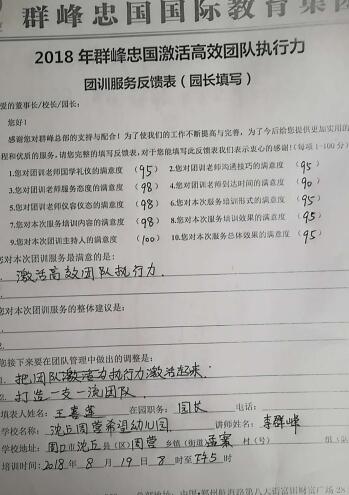 群峰忠国国际教育集团
2018年群峰忠国激活高效团队执行力
团训服务反馈表（园长填写）
爱的董事长/校长/园长：
您好！
感谢您对群峰总部的支持与配合！为了使我们的工作不断提高与完善，为了今后给您提供更加实用的
程和优质的服务，请您完整的填写反馈表，对于您能填写此反馈表我们表示衷心的感谢！（每项1-100分）
1.您对团训老师国学礼仪的满意度（95） 2.您对团训老师沟通技巧的满意度（95
3.您对团训老师服务态度的满意度（98） 4.您对团训老师到达时间的满意度（90）
5.您对团训老师仪容仪态的满意度（98） 6.您对本次服务培训形式的满意度（95）
7.您对本次服务培训内容的满意度（98） 8.您对本次服务培训效果的满意度（95）
9.您对本次团训主持人的满意度（100） 10.您对本次服务总体效果的满意度（95）
您对本次团训服务最满意的是：
激活高效团队执行力.
2.
您对本次团训服务的整体建议是：
1.
2.
您接下来要在团队管理中做出的调整是：
1. 把团队激活力执行力激活起来.
2. 打造一支一流团队
填表人姓名：王喜莲 在园职务：园长 电话：
学校名称：沈丘固营希望幼儿园 讲师姓名：李群峰
学校地址：周口市沈丘县（区）固营乡镇（街道）孟寨村（号）
培训时间：2018年8月19日8时至下午5时